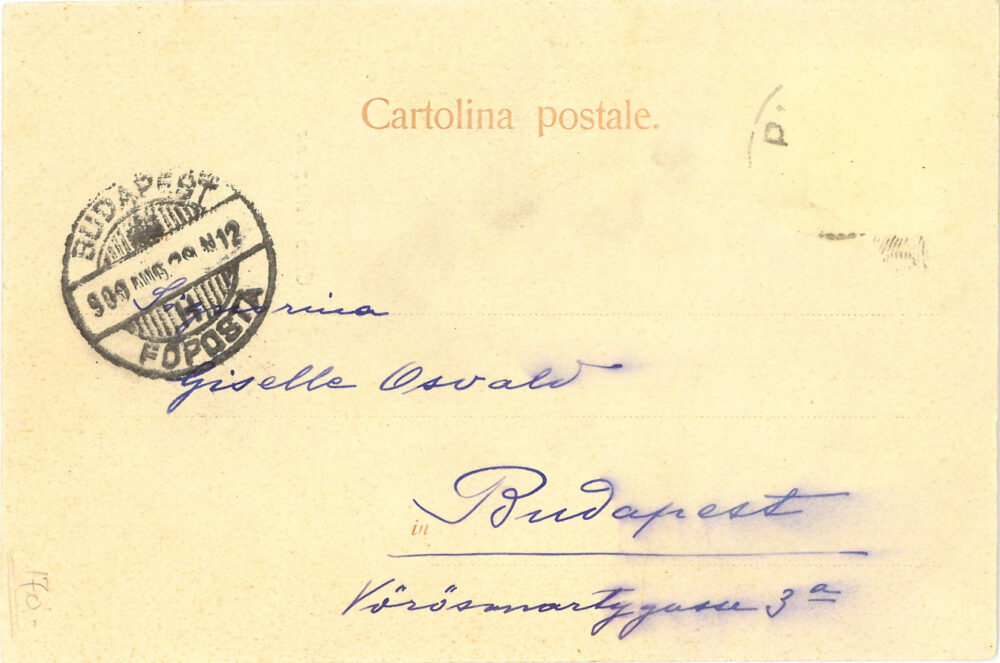 Cartolina postale.
P.
BUDAPEST
900 AUG. 29 N 12
FŐPOSTA
Signorina
Giselle Osvald
in Budapest
Vörösmartygasse 3ª
170-